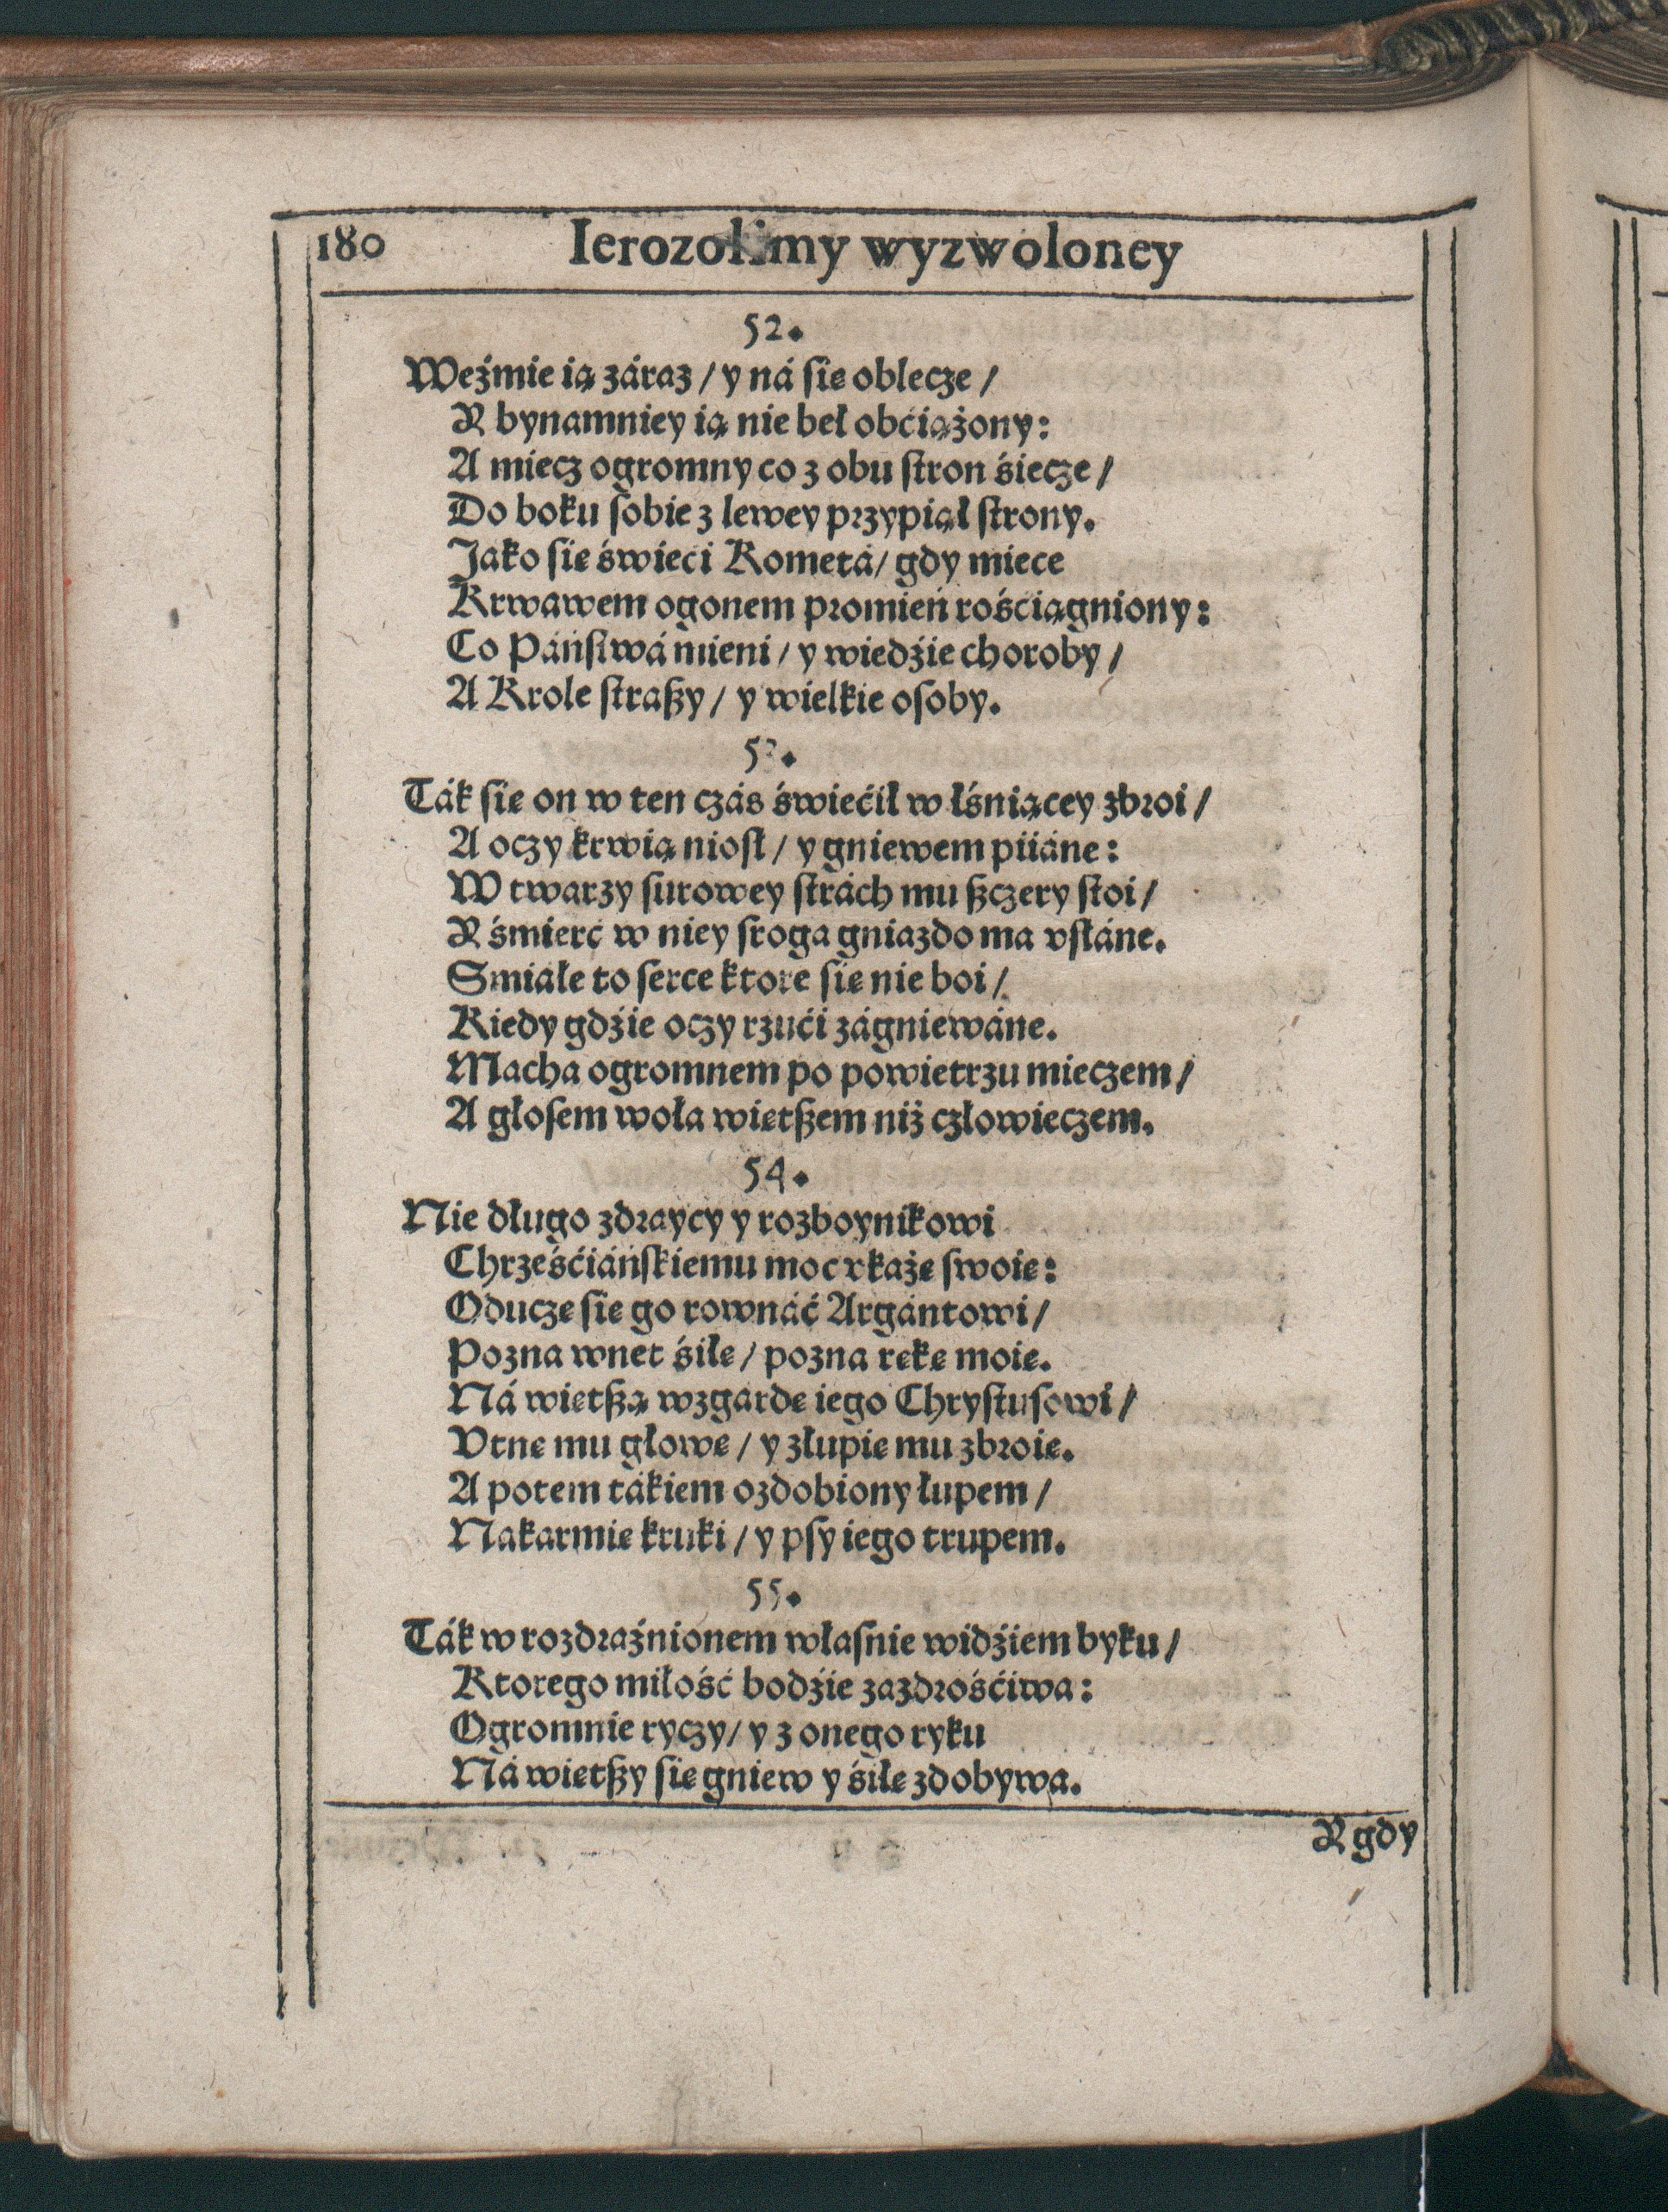 180 Ierozolimy wyzwoloney
52.
Weźmie ią záraz / y ná się oblecze /
Y bynamniey ią nie beł obciążony:
A miecz ogromny co z obu stron śiecze /
Do boku sobie z lewey przypiął strony.
Jáko się świeći Kometá / gdy miece
Krwawem ogonem promień rośćiągniony:
Co Páństwá mieni / y wiedźie choroby /
A Krole straszy / y wielkie osoby.
53.
Ták się on w ten czás świećił w łśniącey zbroi /
A oczy krwią niosł / y gniewem piiáne:
W twarzy surowey strách mu szczery stoi /
Y śmierć w niey sroga gniazdo ma vsłáne.
Smiáłe to serce ktore się nie boi /
Kiedy gdźie oczy rzući zágniewáne.
Macha ogromnem po powietrzu mieczem /
A głosem woła więtszem niż człowieczem.
54.
Nie długo zdraycy y rozboynikowi
Chrześćiáńskiemu moc vkażę swoię:
Oduczę się go rownáć Argántowi /
Pozna wnet śiłę / pozna rękę moię.
Ná więtszą wzgárdę iego Chrystusowi /
Vtnę mu głowę / y złupię mu zbroię.
A potem tákiem ozdobiony łupem /
Nakarmię kruki / y psy iego trupem.
55.
Ták w rozdraźnionem własnie widźiem byku /
Ktorego miłość bodźie zazdrośćiwa:
Ogromnie ryczy / y z onego ryku
Ná więtszy się gniew y śiłę zdobywa.
Y gdy